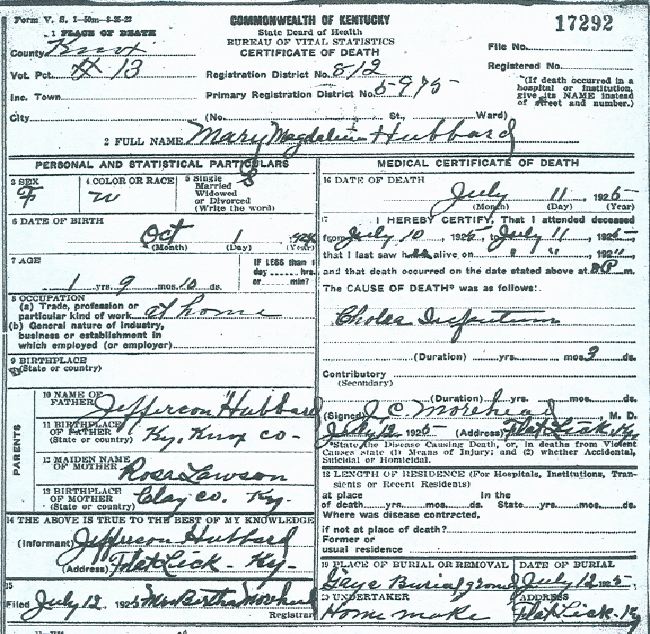 Form V. S. 1-50m-8-25-22
COMMONWEALTH OF KENTUCKY
State Board of Health
BUREAU OF VITAL STATISTICS
CERTIFICATE OF DEATH
17292
1 PLACE OF DEATH
County Knox
Vot. Pct. # 13
Inc. Town
City
Registration District No. 812
Primary Registration District No. 5975
(No. St., Ward)
File No.
Registered No.
(If death occurred in a
hospital or institution,
give its NAME instead
of street and number.)
2 FULL NAME Mary Magdaline Hubbard
PERSONAL AND STATISTICAL PARTICULARS
3 SEX
F
4 COLOR OR RACE
W
5 Single
Married
Widowed
or Divorced
(Write the word)
S
6 DATE OF BIRTH
Oct 1
(Month) (Day) (Year)
7 AGE
1 yrs. 9 mos. 10 ds.
IF LESS than 1
day hrs.
or min?
8 OCCUPATION
(a) Trade, profession or
particular kind of work at home
(b) General nature of industry,
business or establishment in
which employed (or employer)
9 BIRTHPLACE
(State or country)
PARENTS
10 NAME OF
FATHER Jefferson Hubbard
11 BIRTHPLACE
OF FATHER
(State or country) Ky. Knox co-
12 MAIDEN NAME
OF MOTHER
Rosa Lawson
13 BIRTHPLACE
OF MOTHER
(State or country) Clay co. Ky.
14 THE ABOVE IS TRUE TO THE BEST OF MY KNOWLEDGE
(Informant) Jefferson Hubbard
(Address) Flat Lick- Ky-
15
Filed July 12 1925 Mrs Bertha Morehead
Registrar
MEDICAL CERTIFICATE OF DEATH
16 DATE OF DEATH
July 11 1925
(Month) (Day) (Year)
17 I HEREBY CERTIFY, That I attended deceased
from July 10 1925, to July 11 1925
that I last saw h alive on " " 192"
and that death occurred on the date stated above at P m.
The CAUSE OF DEATH* was as follows:
Cholea Infentum
(Duration) yrs. mos. 3 ds.
Contributory
(Secondary)
(Duration) yrs. mos. ds.
(Signed) J. C. Morehead M. D.
July 12 1925 (Address) Flat Lick, Ky
*State the Disease Causing Death, or, in deaths from Violent
Causes State (1) Means of Injury; and (2) whether Accidental,
Suicidal or Homicidal.
18 LENGTH OF RESIDENCE (For Hospitals, Institutions, Tran-
sients or Recent Residents)
at place In the
of death yrs. mos. ds. State yrs. mos. ds.
Where was disease contracted,
if not at place of death?
Former or
usual residence
19 PLACE OF BURIAL OR REMOVAL
Gaye Burial ground
DATE OF BURIAL
July 12 1925
20 UNDERTAKER
Home make
ADDRESS
Flat Lick, Ky